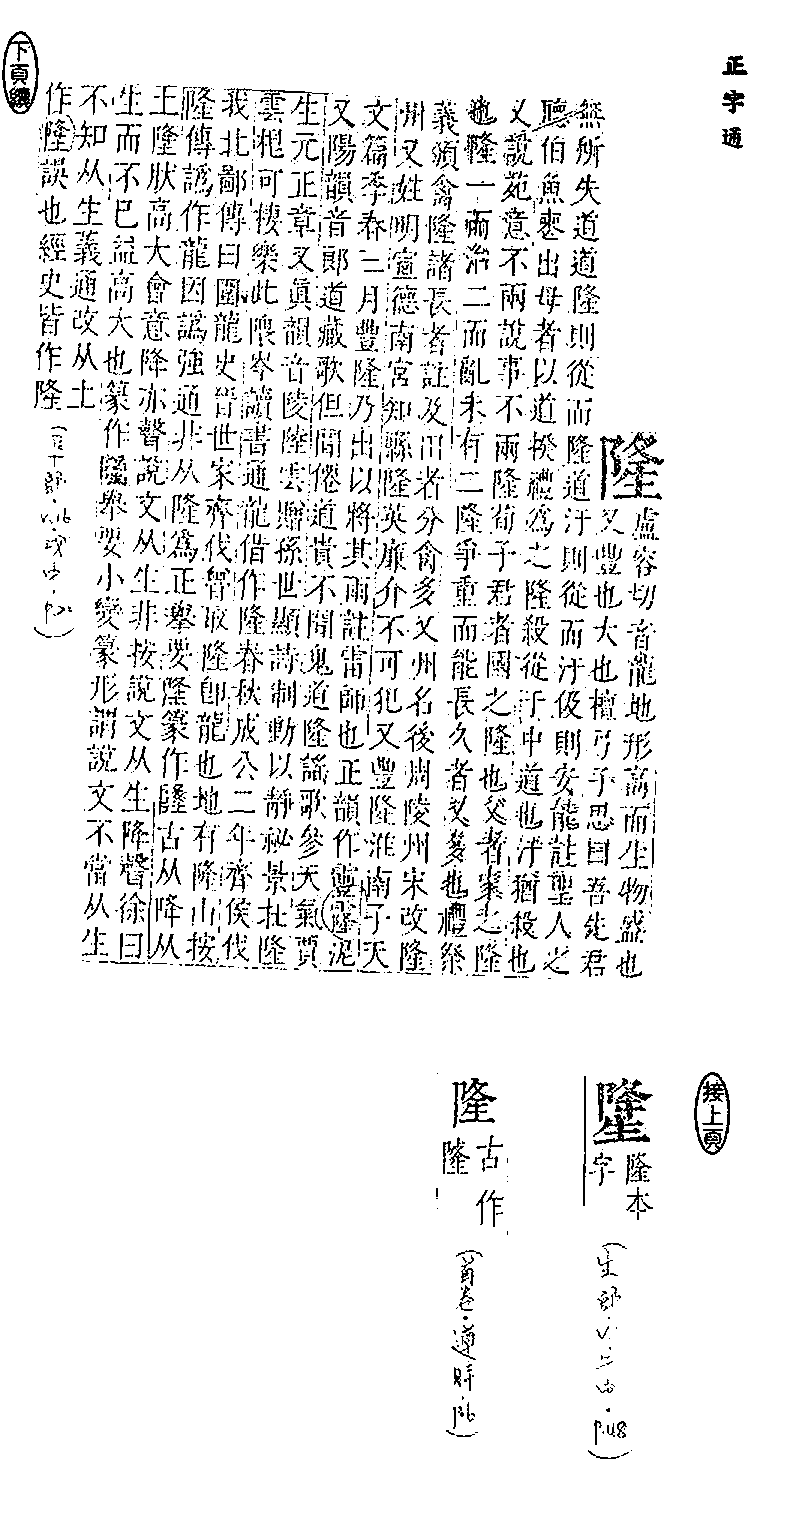 正字通
隆
盧容切音龍地形高而生物盛也
又豐也大也檀弓子思曰吾先君
無所失道道隆則從而隆道汙則從而汙伋則安能註聖人之
聽伯魚喪出母者以道揆禮為之隆殺從于中道也汙猶殺也
又說苑意不兩說事不兩隆荀子君者國之隆也父者家之隆
也隆一而治二而亂未有二隆爭重而能長久者又多也禮祭
義頒禽隆諸長者註及田者分禽多又州名後周陵州宋改隆
州又姓明宣德南宮知縣隆英廉介不可犯又豐隆淮南子天
文篇季春三月豐隆乃出以將其雨註雷師也正韻作靊霳泥
又陽韻音郎道藏歌但聞僊道貴不聞鬼道隆謠歌參天氣賈
生元正章又眞韻音陵陸雲贈孫世顯詩制動以靜祕景在隆
雲根可棲樂此隈岑讀書通龍借作隆春秋成公二年齊侯伐
我北鄙傳曰圍龍史晉世家齊伐魯取隆卽龍也地有隆山按
隆傳譌作龍因譌強通非从隆為正舉要隆篆作䧰古从降从
王隆狀高大會意降亦聲說文从生非按說文从生降聲徐曰
生而不已益高大也篆作䧰舉要小變篆形謂說文不當从生
不知从生義通改从土
作隆誤也經史皆作隆
下頁續
接上頁
隆本
字
隆
古作